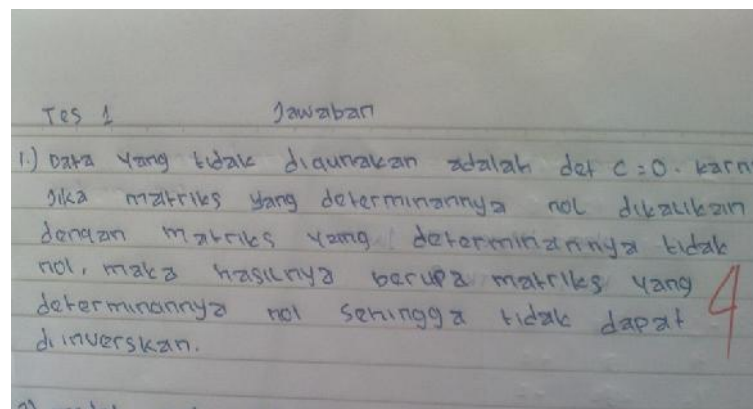 Tes 1 Jawaban
1.) Data yang tidak digunakan adalah det C = 0. karn
jika matriks yang determinannya nol dikalikan
dengan matriks yang determinannya tidak
nol, maka hasilnya berupa matriks yang
determinannya nol sehingga tidak dapat
diinverskan.
4